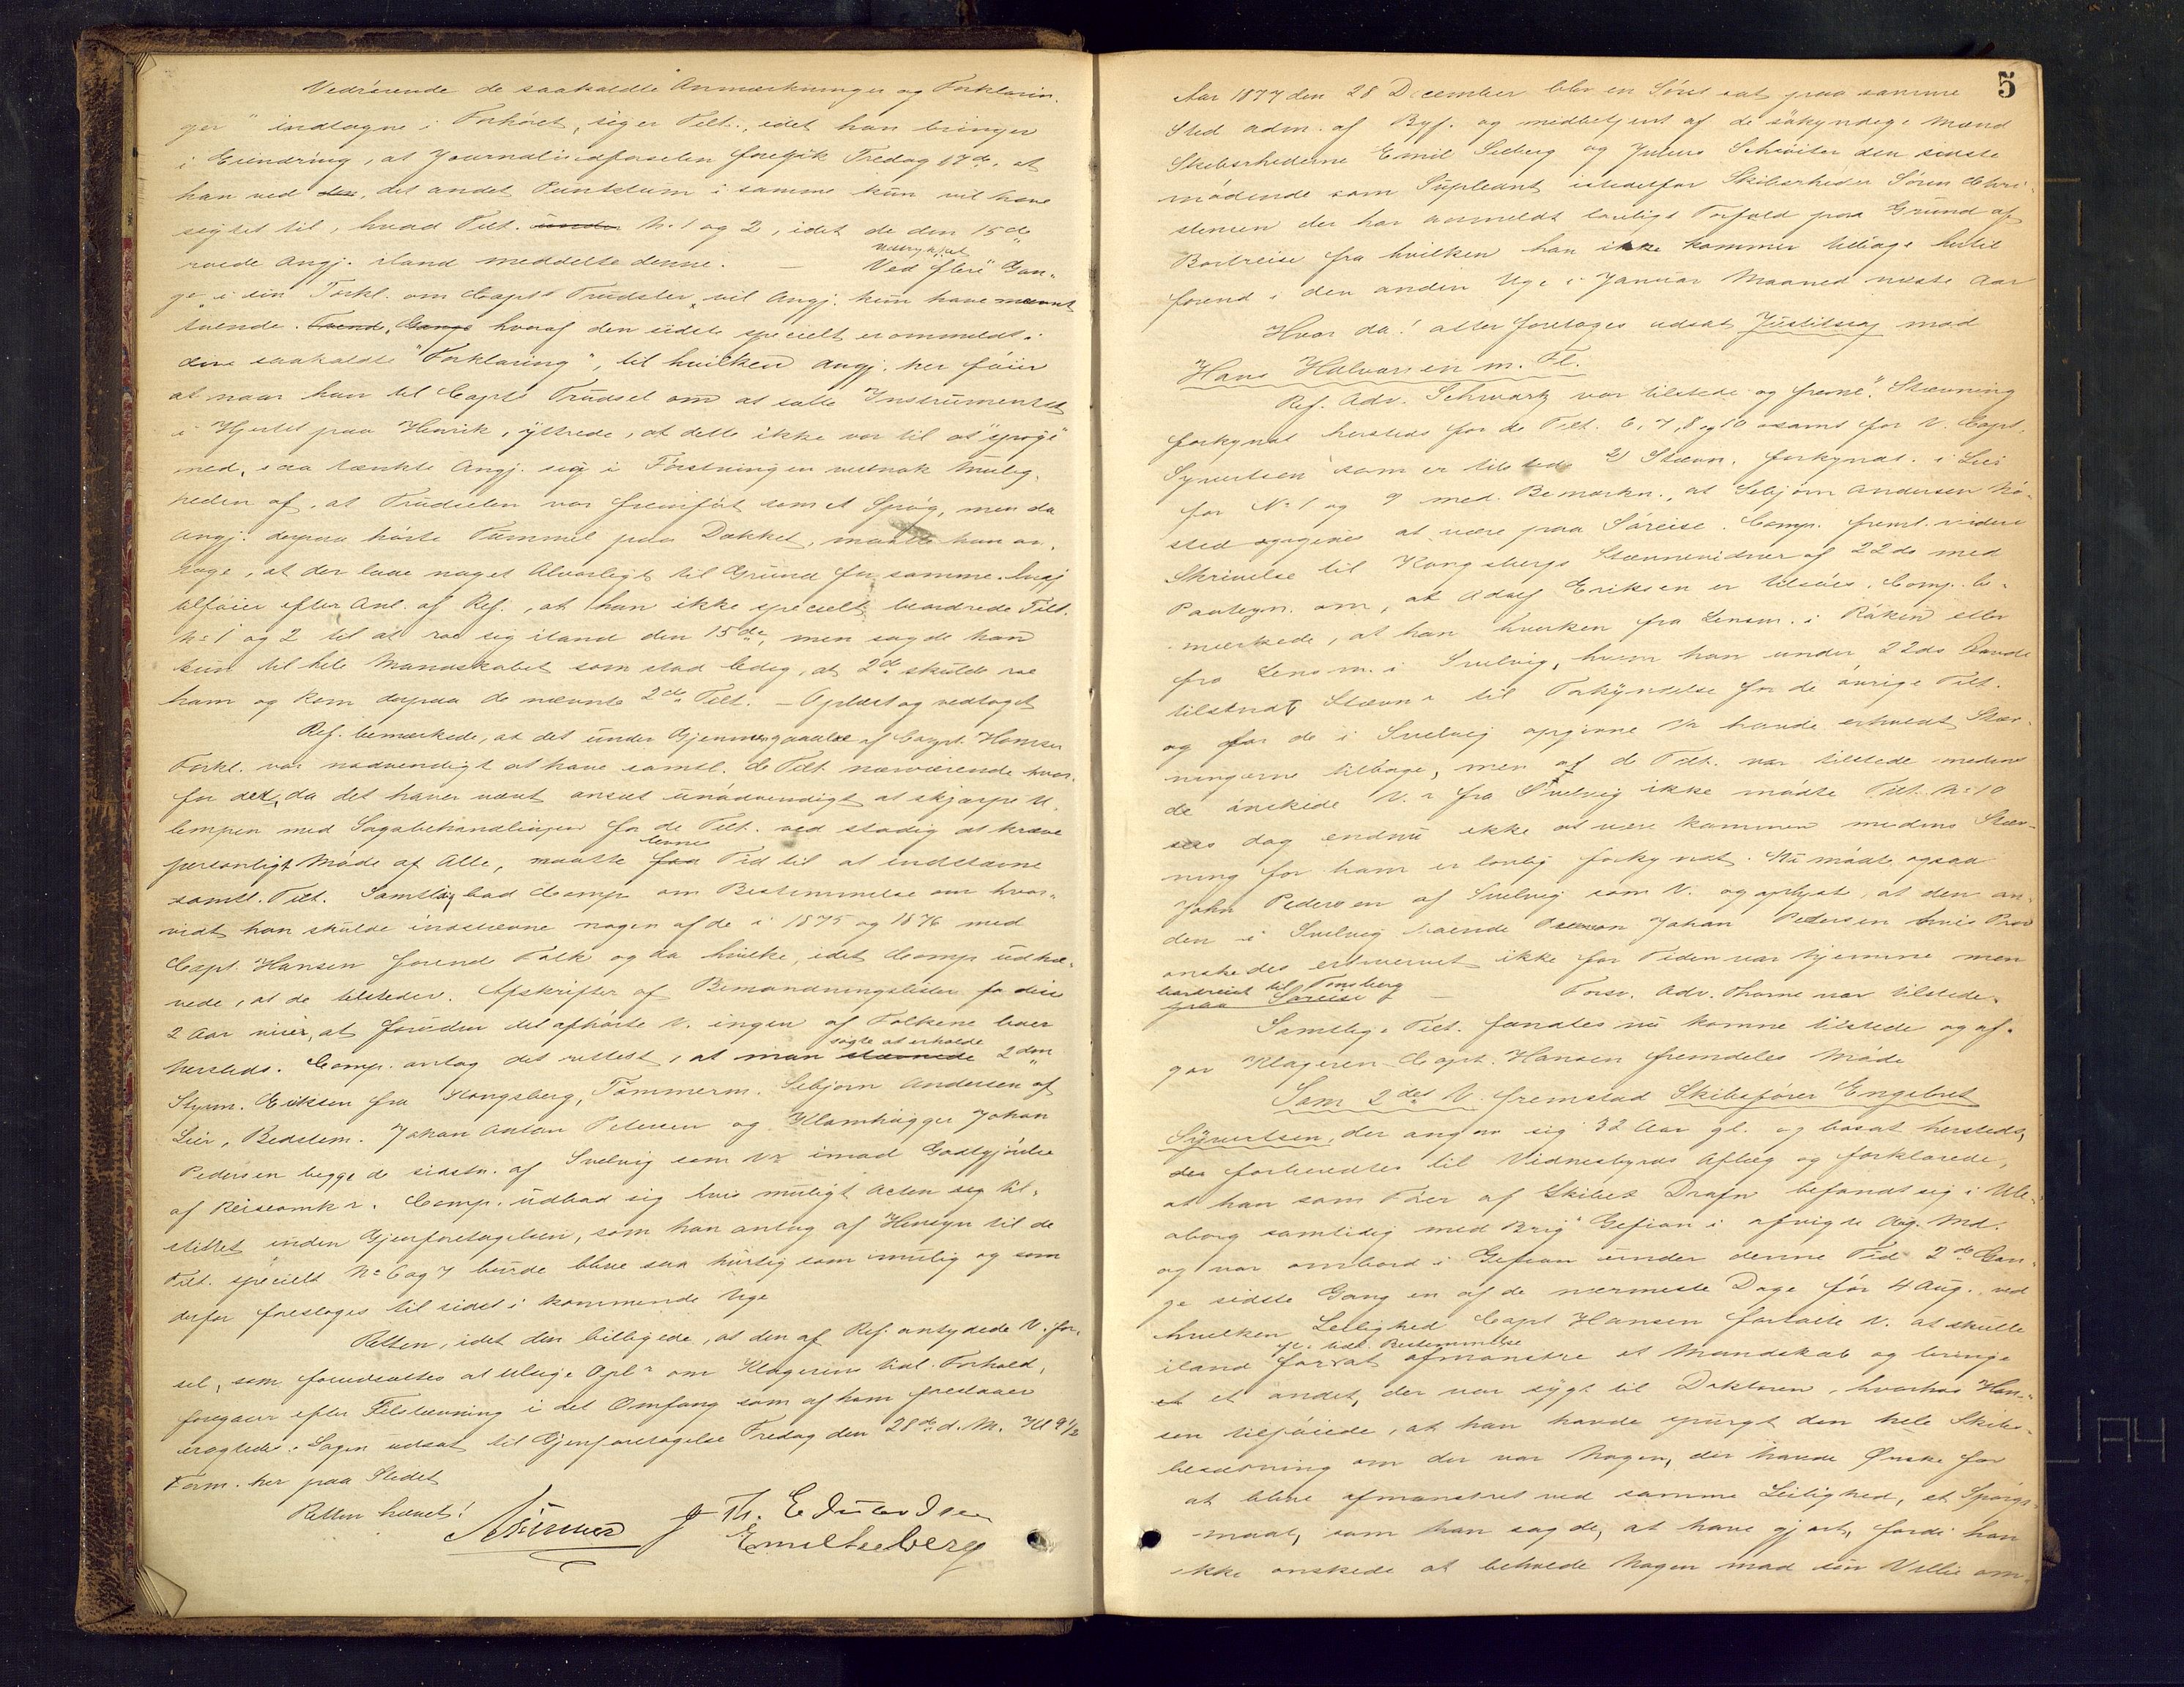 Vedrørende de saakaldte Anmærkninger og Forklarin-
ger" indtagne i Forhöret, siger Tilt., idet han bringer
i Erindring, at Journalindførselen foregik Fredag 17de, at
han ved det andet Punktum i samme kun vil have
sigtet til, hvad Tilt. No 1 og 2, idet de den 15de
roede Angj. iland meddelte denne. — Ved Udtrykket "flere Gan-
ge" i sin Forkl. om Capts Trudsler, vil Angj. kun have nævnt
tvende. hvoraf den sidste specielt er ommeldt i
den saakaldte "Forklaring", til hvilken Angj. her föier
at naar han til Capts Trudsel om at sætte Instrumentet
i Hjertet paa Henrik, yttrede, at dette ikke var til at "spøge"
med, saa tænkte Angj. sig i Förstningen vistnok Mulig-
heden af, at Trudselen var fremført som et Spøg, men da
Angj. derpaa hörte Tummel paa Dækket, maatte han an-
tage, at der laae noget Alvorligt til Grund for samme. Angj
tilföier efter Anl. af Ref., at han ikke specielt beordrede Tilt.
No 1 og 2 til at roe sig iland den 15de, men sagde han
kun til hele Mandskabet som stod ledig, at 2de skulde roe
ham og kom derpaa de nævnte 2de Tilt. — Oplæst og vedtaget
Ref. bemærkede, at det under Gjennemgaaelse af Capt. Hansen
Forkl. var nødvendigt at have samtl. de Tilt nærværende hvor-
for det, da det haver været anset unödvendigt at skjærpe U-
lempen med Sagsbehandlingen for de Tilt. ved stadig at kræve
personligt Möde af Alle, maatte levnes Tid til at indstævne
samtl. Tilt. Samtidig bad Comp. om Bestemmelse om hvor-
vidt han skulde indstævne nogen af de i 1875 og 1876 med
Capt. Hansen farende Folk og da hvilke, idet Comp udhæ-
vede, at de tilstedev. Afskrifter af Bemandningslister for disse
2 Aar viser, at foruden det afhörte V. ingen af Folkene boer
hersteds. Comp. antog det rettest, at man søgte at erholde 2den
Styrm. Eriksen fra Kongsberg, Tömmerm. Sebjørn Andersen af
Lier, Bedstem. Johan Anton Petersen og Klomhugger Johan
Pedersen begge de sidstn. af Svelvig som Vr imod Godtgjörelse
af Reiseomk r. Comp. udbad sig hvis muligt Acten sig til-
stillet inden Gjenforetagelsen, som han antog af Hensyn til de
Tilt. specielt No 6 og 7 burde blive saa hurtig som mulig og som
derfor foresloges til sidst i kommende Uge
Retten, idet den billigede, at den af Ref. antydede V. för-
sel, som forudsattes at tilsigte Opl r om Klagerens tidl. Forhold,
foregaaer efter Tilstævning i det Omfang som af ham foreslaaet
eragtede: Sagen udsat til Gjenforetagelse Fredag den 28de d. M. Kl 9 1/2
Form. her paa Stedet
Retten hævet!
J Th. Edvardsen
Emil Seeberg
5
Aar 1877 den 28 December blev en Söret sat paa samme
Sted adm. af Byf. og medbetjent af de sökyndige Mænd
Skibsrhederne Emil Seeberg og Julius Schröiter den sidste
mödende som Supleant istedetfor Skibsrheder Sören Chri-
stensen der har anmeldt lovligt Forfald paa Grund af
Bortreise fra hvilken han ikke kommer tilbage hertil
forend i den anden Uge i Januar Maaned næste Aar
Hvor da! atter foretages udsat Justitssag mod
Hans Halvorsen m. Fl.
Ref. Adv. Schwartz var tilstede og freml. 1) Stævning
forkyndt hersteds for de Tilt. 6, 7, 8 og 10 samt for V. Capt.
Syvertsen som er tilstede 2) Stævn. forkyndt i Lier
for No 1 og 9 med Bemærkn., at Sebjørn Andersen Nö-
sted opgives at være paa Söreise. Comp. freml. videre
Skrivelse til Kongsbergs Stævnevidner af 22 ds med
Paategn. om, at Adolf Eriksen er tilsöes. Comp. be-
mærkede, at han hverken fra Lensm. i Röken eller
fra Lensm. i Svelvig, hvem han under 22 ds havde
tilsendt Stævn r til Forkyndelse for de övrige Tilt.
og for de i Svelvig opgivne Vr havde erholdt Stæv-
ningerne tilbage, men af de Tilt. var tilstede medens
de önskede V. r fra Svelvig ikke mödte Tilt. No 10
sees dog endnu ikke at være kommen medens Stæv-
ning for ham er lovlig forkyndt. Nu mødte ogsaa
John Pedersen af Svelvig som V. og oplyste, at den an-
den i Svelvig boende Person Johan Pedersen hvis Prov
ønskedes erhvervet ikke for Tiden var hjemme men
bortreist til Tønsberg — Forsv. Adv. Thorne var tilstede.
Samtlige Tilt. fandtes nu komne tilstede og af-
gav Klageren Capt. Hansen fremdeles Møde
Som 2det V. fremstod Skibsfører Engebret
Syvertsen, der angav sig 32 Aar gl. og bosat hersteds,
der forberedtes til Vidnesbyrds Aflæg og forklarede,
at han som Förer af Skibet Drafn befandt sig i Ule-
aborg samtidig med Brig Gefion i afvigte Aug. Md.
og var ombord i Gefion under denne Tid 2de Gan-
ge sidste Gang en af de nærmeste Dage för 4 Aug. ved
hvilken Leilighed Capt Hansen fortalte V. at skulle
iland efter tidl. Bestemmelse for at afmønstre et Mandskab og bringe
et andet, der var sygt til Doktoren, hvorhos Han-
sen tilföiede, at han havde spurgt den hele Skibs-
besætning om der var Nogen, der havde Ønske for
at blive afmønstret ved samme Leilighed, et Spørgs-
maal, som han sagde, at have gjort, fordi han
ikke ønskede at beholde Nogen mod sin Villie om-